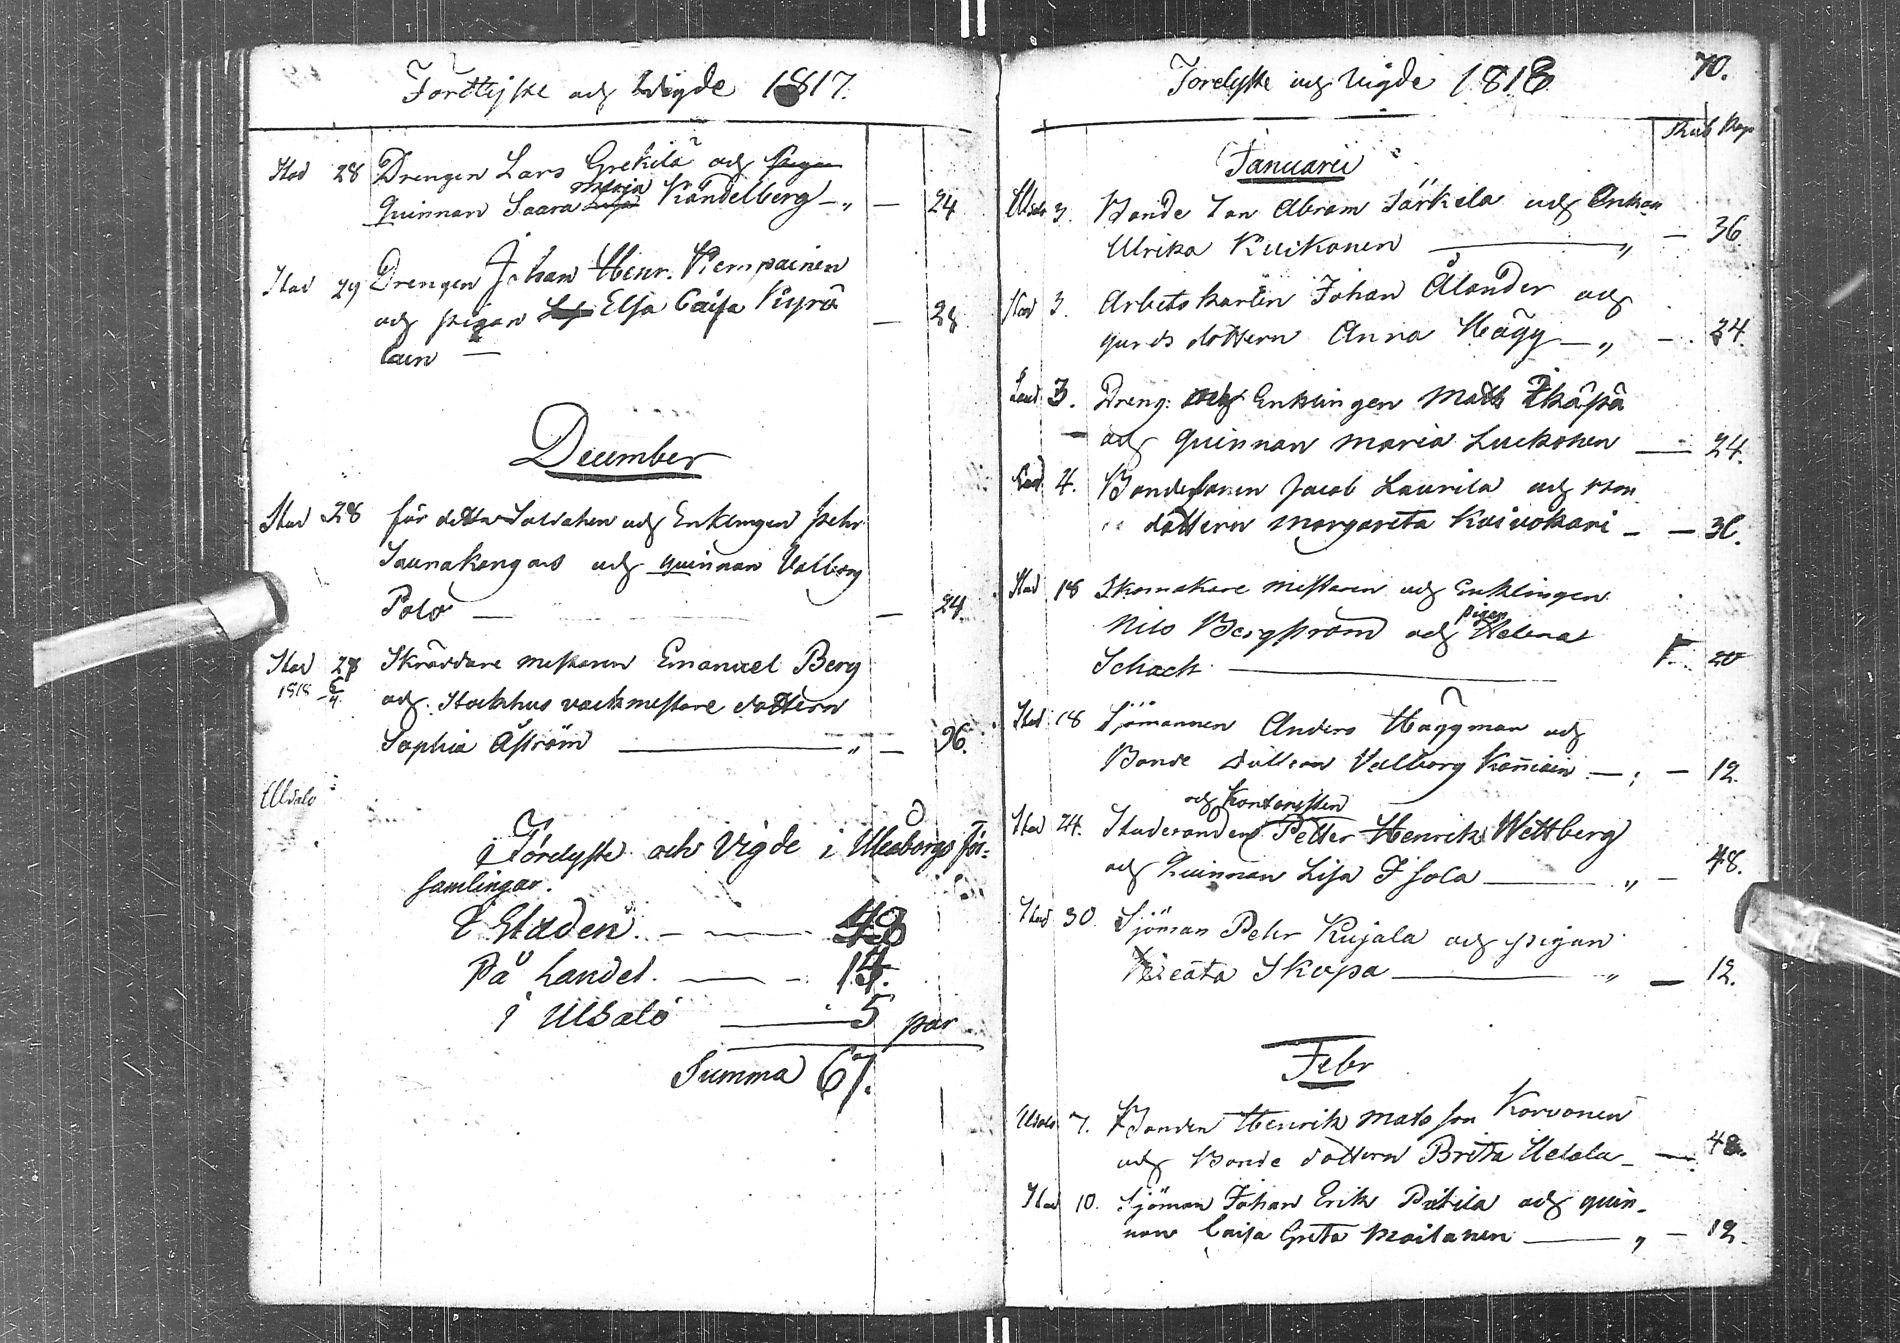 Förelyste och Vigde 1817.
Stad 28 Drengen Lars Grekilä och pigan
quinnan Saara Maja Kändelberg — „ — 24
Stad 29 Drengen Johan Henr. Kempainen
och pigan Elsa Caisa Kyrö — 28
lain —
December
Stad 28 för detta Soldaten och Enklingen Pehr
Saunakangas och quinnan Valborg
Polo — — 24.
Stad 28 Skräddare mestaren Emanuel Berg
1818 och Stockhus vacktmestare dottern
Sophia Åström — „ — 96.
Uleåsalo
Förelyste och Vigde i Uleåborgs för=
samlingar.
I Staden — 48
På Landet — 14.
i Ulåsalo — 5 par
Summa 67.
Förelyste och Vigde 1818 70.
Rub Kop
Januarii
3. Bonde Son Abram Järkelä och Enkan
Ulrika Kuikonen — „ — 36
Stad 3. Arbetskarlen Johan Ålander och
gårdsdottern Anna Hägg — „ — 24
Land 3. Dreng. och Enklingen Matts Ikäpä
och quinnan Maria Luckonen — 24.
Land 4. Bondesonen Jacob Laurila och Bon
dottern Margareta Kuivokari — — 36.
Stad 18 Skomakare mestaren och Enklingen
Nils Bergström och pigan Helena
Schack — 1. 20
Stad 18 Sjömannen Anders Häggman och
Bonde dottern Valborg — „ — 12.
Stad 24. Studeranden och Kontoristen Petter Henrik Wettberg
och Quinnan Lisa Isola — „ — 48.
Stad 30. Sjöman Pehr Kujala och pigan
Beata Skopa — „ — 12.
Febr
7. Bonden Henrik Mats son Korvonen
och Bonde dottern Brita Uelola — — 48.
Stad 10. Sjöman Johan Erik Pätilä och quin-
nan Caisa Greta Moilanen — „ — 12.